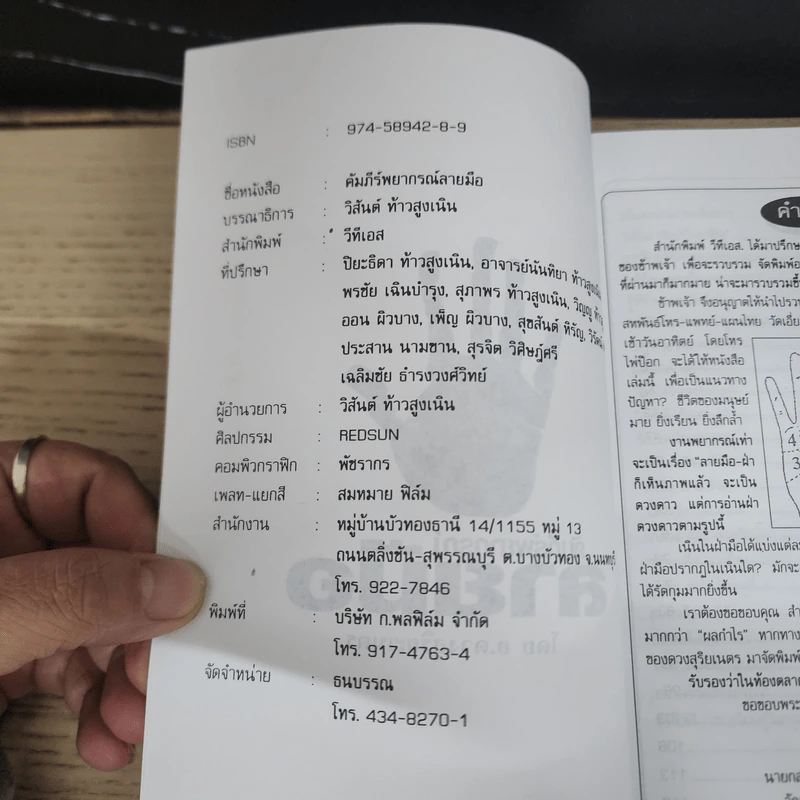 ISBN : 974-58942-8-9
ชื่อหนังสือ : คัมภีร์พยากรณ์ลายมือ
บรรณาธิการ : วิสันต์ ท้าวสูงเนิน
สำนักพิมพ์ : วีทีเอส
ที่ปรึกษา : ปิยะธิดา ท้าวสูงเนิน, อาจารย์นันทิยา ท้าวสูงเนิน
พรชัย เฉินบำรุง, สุภาพร ท้าวสูงเนิน, วิญญู
ออน ผิวบาง, เพ็ญ ผิวบาง, สุขสันต์ หิรัญ,
ประสาน นามขาน, สุรจิต วิศิษฎ์ศรี
เฉลิมชัย ธำรงวงศ์วิทย์
ผู้อำนวยการ : วิสันต์ ท้าวสูงเนิน
ศิลปกรรม : REDSUN
คอมพิวกราฟิก : พัชรากร
เพลท-แยกสี : สมหมาย ฟิล์ม
สำนักงาน : หมู่บ้านบัวทองธานี 14/1155 หมู่ 13
ถนนตลิ่งชัน-สุพรรณบุรี ต.บางบัวทอง จ.นนทบุรี
โทร. 922-7846
พิมพ์ที่ : บริษัท ก.พลฟิล์ม จำกัด
โทร. 917-4763-4
จัดจำหน่าย : ธนบรรณ
โทร. 434-8270-1
คำ
สำนักพิมพ์ วีทีเอส. ได้มาปรึกษา
ของข้าพเจ้า เพื่อจะรวบรวม จัดพิมพ์
ที่ผ่านมาก็มากมาย น่าจะมารวบรวมขึ้
ข้าพเจ้า จึงอนุญาตให้นำไปรวบ
สหพันธ์โหร-แพทย์-แผนไทย วัดเอี่ย
เช้าวันอาทิตย์ โดยโหร
ไพ่ป๊อก จะได้ให้หนังสือ
เล่มนี้ เพื่อเป็นแนวทาง
ปัญหา? ชีวิตของมนุษย์
มาย ยิ่งเรียน ยิ่งลึกล้ำ
งานพยากรณ์เท่า
จะเป็นเรื่อง "ลายมือ-ฝ่า
ก็เห็นภาพแล้ว จะเป็น
ดวงดาว แต่การอ่านฝ่า
ดวงดาวตามรูปนี้
4
3
เนินในฝ่ามือได้แบ่งแต่ละ
ฝ่ามือปรากฏในเนินใด? มักจะ
ได้รัดกุมมากยิ่งขึ้น
เราต้องขอขอบคุณ สำ
มากกว่า "ผลกำไร" ทากทาง
ของดวงสุริยเนตร มาจัดพิมพ์
รับรองว่าในท้องตลาด
ขอขอบพระ
นายกส